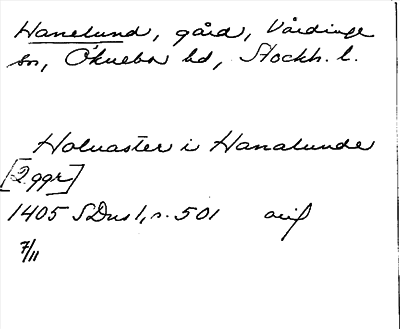 Hanelund, gård, Vårdinge
sn, Öknebo hd, Stockh. l.
Holuaster i Hanalunde
[2 ggr]
1405 SDns 1, s. 501 avif
7/11